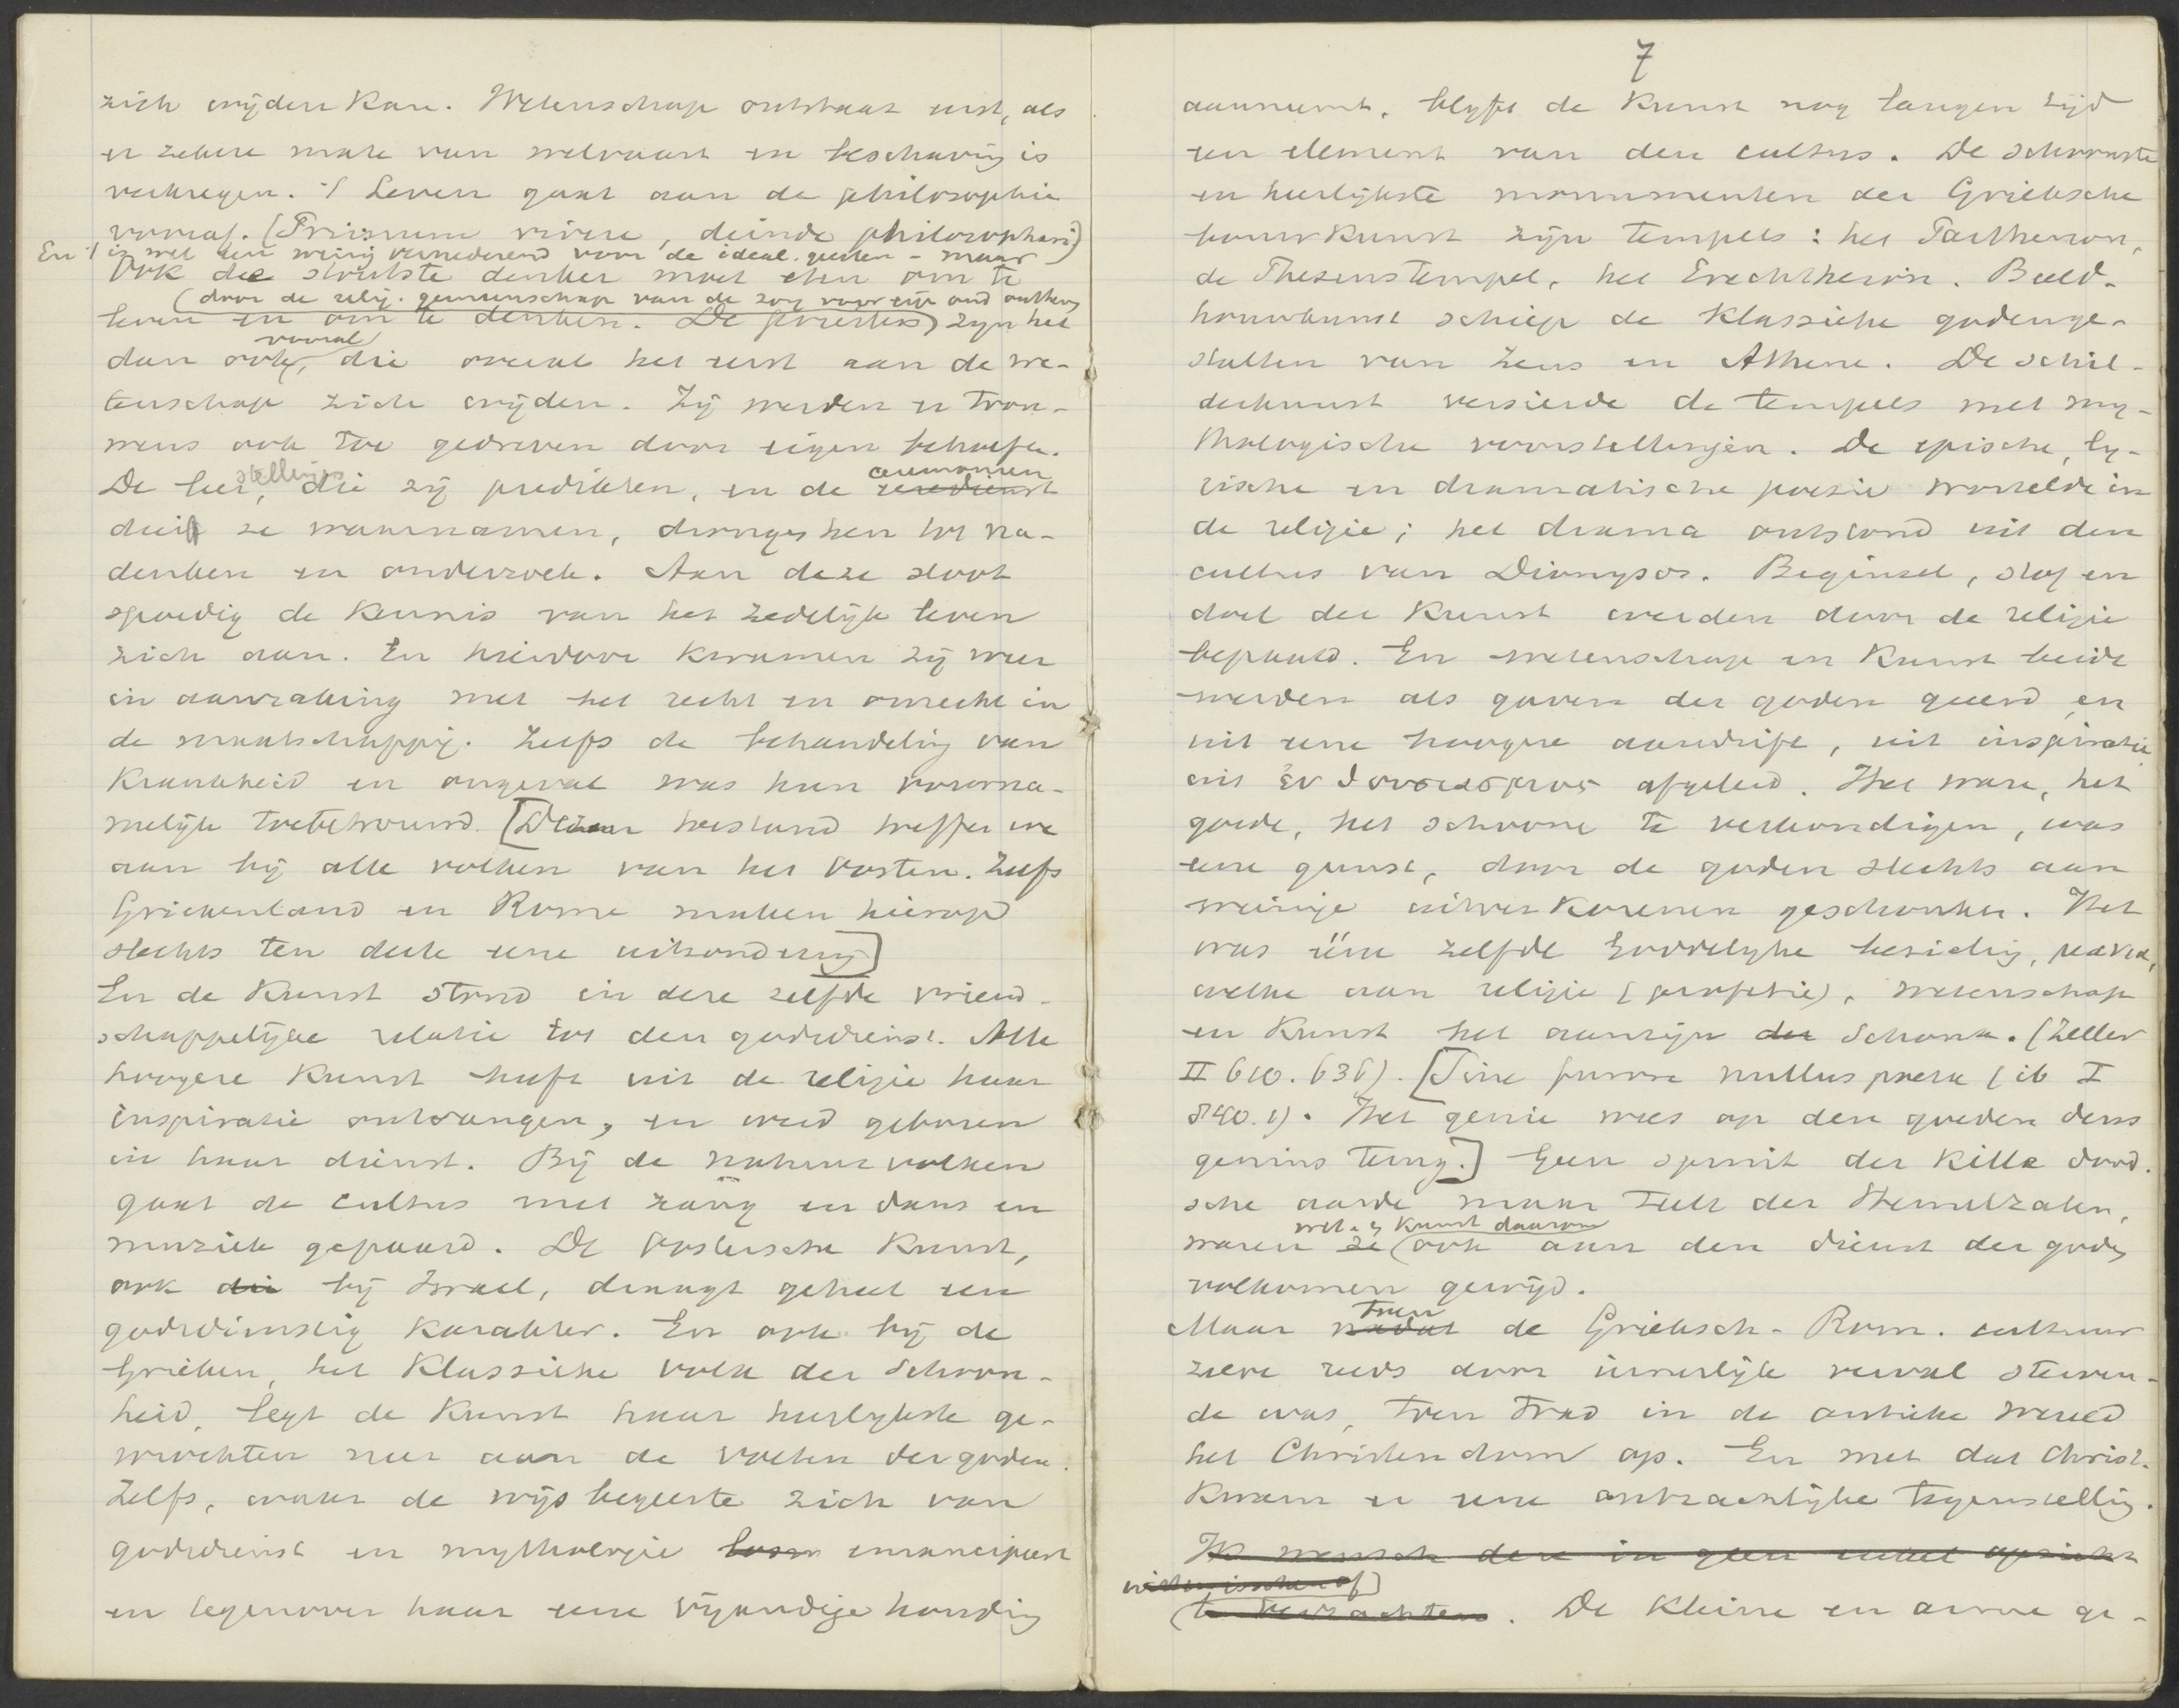 zich wijden kan. Wetenschap ontstaat eerst, als
er zekere mate van welvaart en beschaving is
verkregen. 't Leven gaat aan de philosophie
vooraf. (Primum vivere, deinde philosophari)
En 't is wel een weinig vernederend voor de ideal. geesten - maar
Ook de stoutste denker moet eten om te
(door de relig. gemeenschap van de zorg voor eig. ond. ontheven
leven en om te denken. De priesters zijn het
vooral
dan ook, die overal het eerst aan de we-
tenschap zich wijden. Zij werden er trou-
wens ook toe gedreven door eigen behoefte.
stellingen ceremonien
De leer, die zij predikten, en de eeredienst
dien ze waarnamen, drongen hen tot na-
denken en onderzoek. Aan deze sloot
spoedig de kennis van het zedelijk leven
zich aan. En hierdoor kwamen zij weer
in aanraking met het recht en onrecht in
de maatschappij. Zelfs de behandeling van
krankheid en ongeval was hun voorna-
melijk toebetrouwd. [Dezen toestand treffen we
aan bij alle volken van het Oosten. Zelfs
Griekenland en Rome maken hierop
slechts ten deele eene uitzondering]
En de Kunst stond in deze zelfde vriend-
schappelijke relatie tot den godsdienst. Alle
hoogere Kunst heeft uit de religie haar
inspiratie ontvangen, en werd geboren
in haar dienst. Bij de natuurvolken
gaat de cultus met zang en dans en
muziek gepaard. De Oostersche Kunst,
ook die bij Israel, draagt geheel een
godsdienstig karakter. En ook bij de
Grieken, het klassieke volk der schoon-
heid, legt de Kunst haar heerlijkste ge-
wrochten neer aan de voeten der goden.
Zelfs, waar de wijsbegeerte zich van
godsdienst en mythologie losm emancipeert
en tegenover haar eene vijandige houding
7
aanneemt, blijft de Kunst nog langen tijd
een element van den cultus. De schoonste
en heerlijkste monumenten der Grieksche
bouwkunst zijn tempels: het Parthenon,
de Theseustempel, het Erechtheion. Beeld-
houwkunst schiep de klassieke godenge-
stalten van Zeus en Athene. De schil-
derkunst versierde de tempels met my-
thologische voorstellingen. De epische, ly-
rische en dramatische poezie wortelde in
de religie; het drama ontstond uit den
cultus van Dionysos. Beginsel, stof en
doel der Kunst werden door de religie
bepaald. En wetenschap en Kunst beide
werden als gaven der goden geeerd en
uit eene hoogere aandrift, uit inspiratie
uit ἐνθουσιασμος afgeleid. Het ware, het
goede, het schoone te verkondigen, was
eene gunst, door de goden slechts aan
weinige uitverkorenen geschonken. Het
was ééne zelfde goddelijke bezieling, μανια,
welke aan religie (profetie), wetenschap
en Kunst het aanzijn der schonk. (Zeller
II 610. 636). [Sine furore nullus poeta (ib I
840. 1). Het genie wees op den goeden deus
genius terug.] Geen spruit der kille dood-
sche aarde maar telt der Hemelzalen,
wet. en Kunst daarom
waren ze ook aan den dienst der goden
volkomen gewijd.
toen
Maar nadat de Grieksch-Rom. cultuur
zelve reeds door innerlijk verval sterven-
de was, toen trad in de antieke wereld
het Christendom op. En met dat Christ.
kwam er eene ontzachlijke tegenstelling.
De Kleine en arme ge-